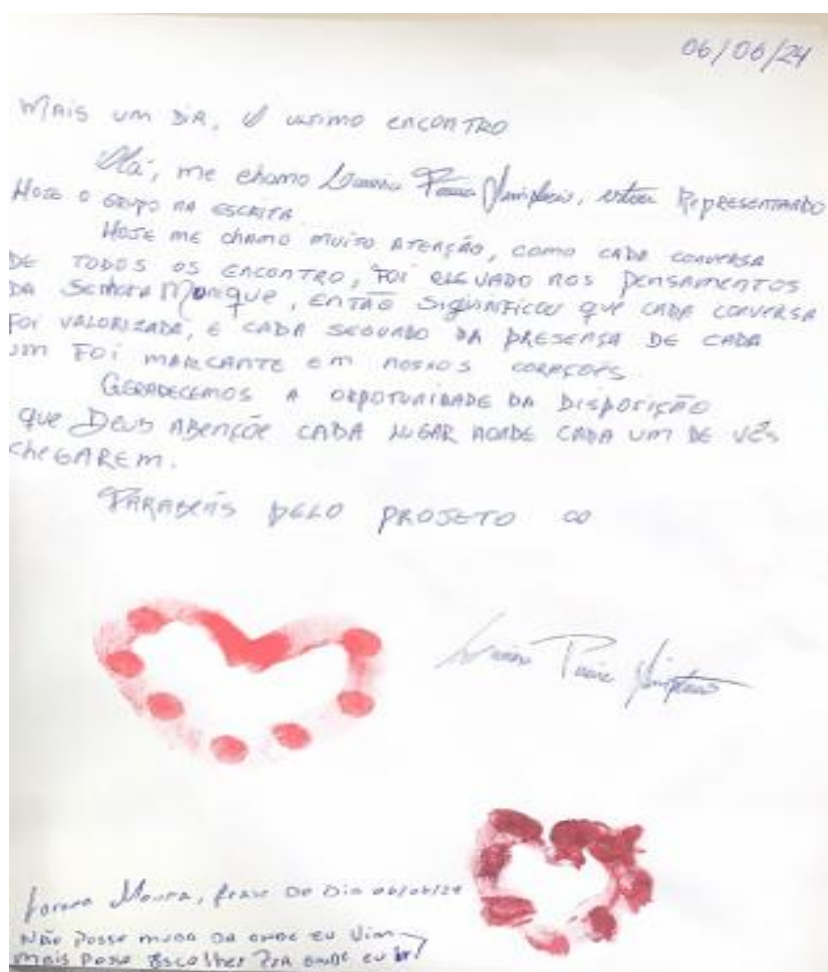 06/06/24
Mais um dia, o ultimo encontro
Olá, me chamo estou Representando
Hoje o grupo na escrita
Hoje me chamo muito atenção, como cada conversa
de todos os encontro, foi elevado nos pensamentos
da Senhora Monique, então significou que cada conversa
foi valorizada, e cada segundo da presensa de cada
um foi marcante em nossos corações
Geradecemos a oportunidade da disposição
que Deus abençõe cada lugar aonde cada um de vês
chegarem.
Parabéns pelo projeto ∞
Moura, frase do dia 06/06/24
Não posso muda da onde eu vim
mais posso escolher pra onde eu